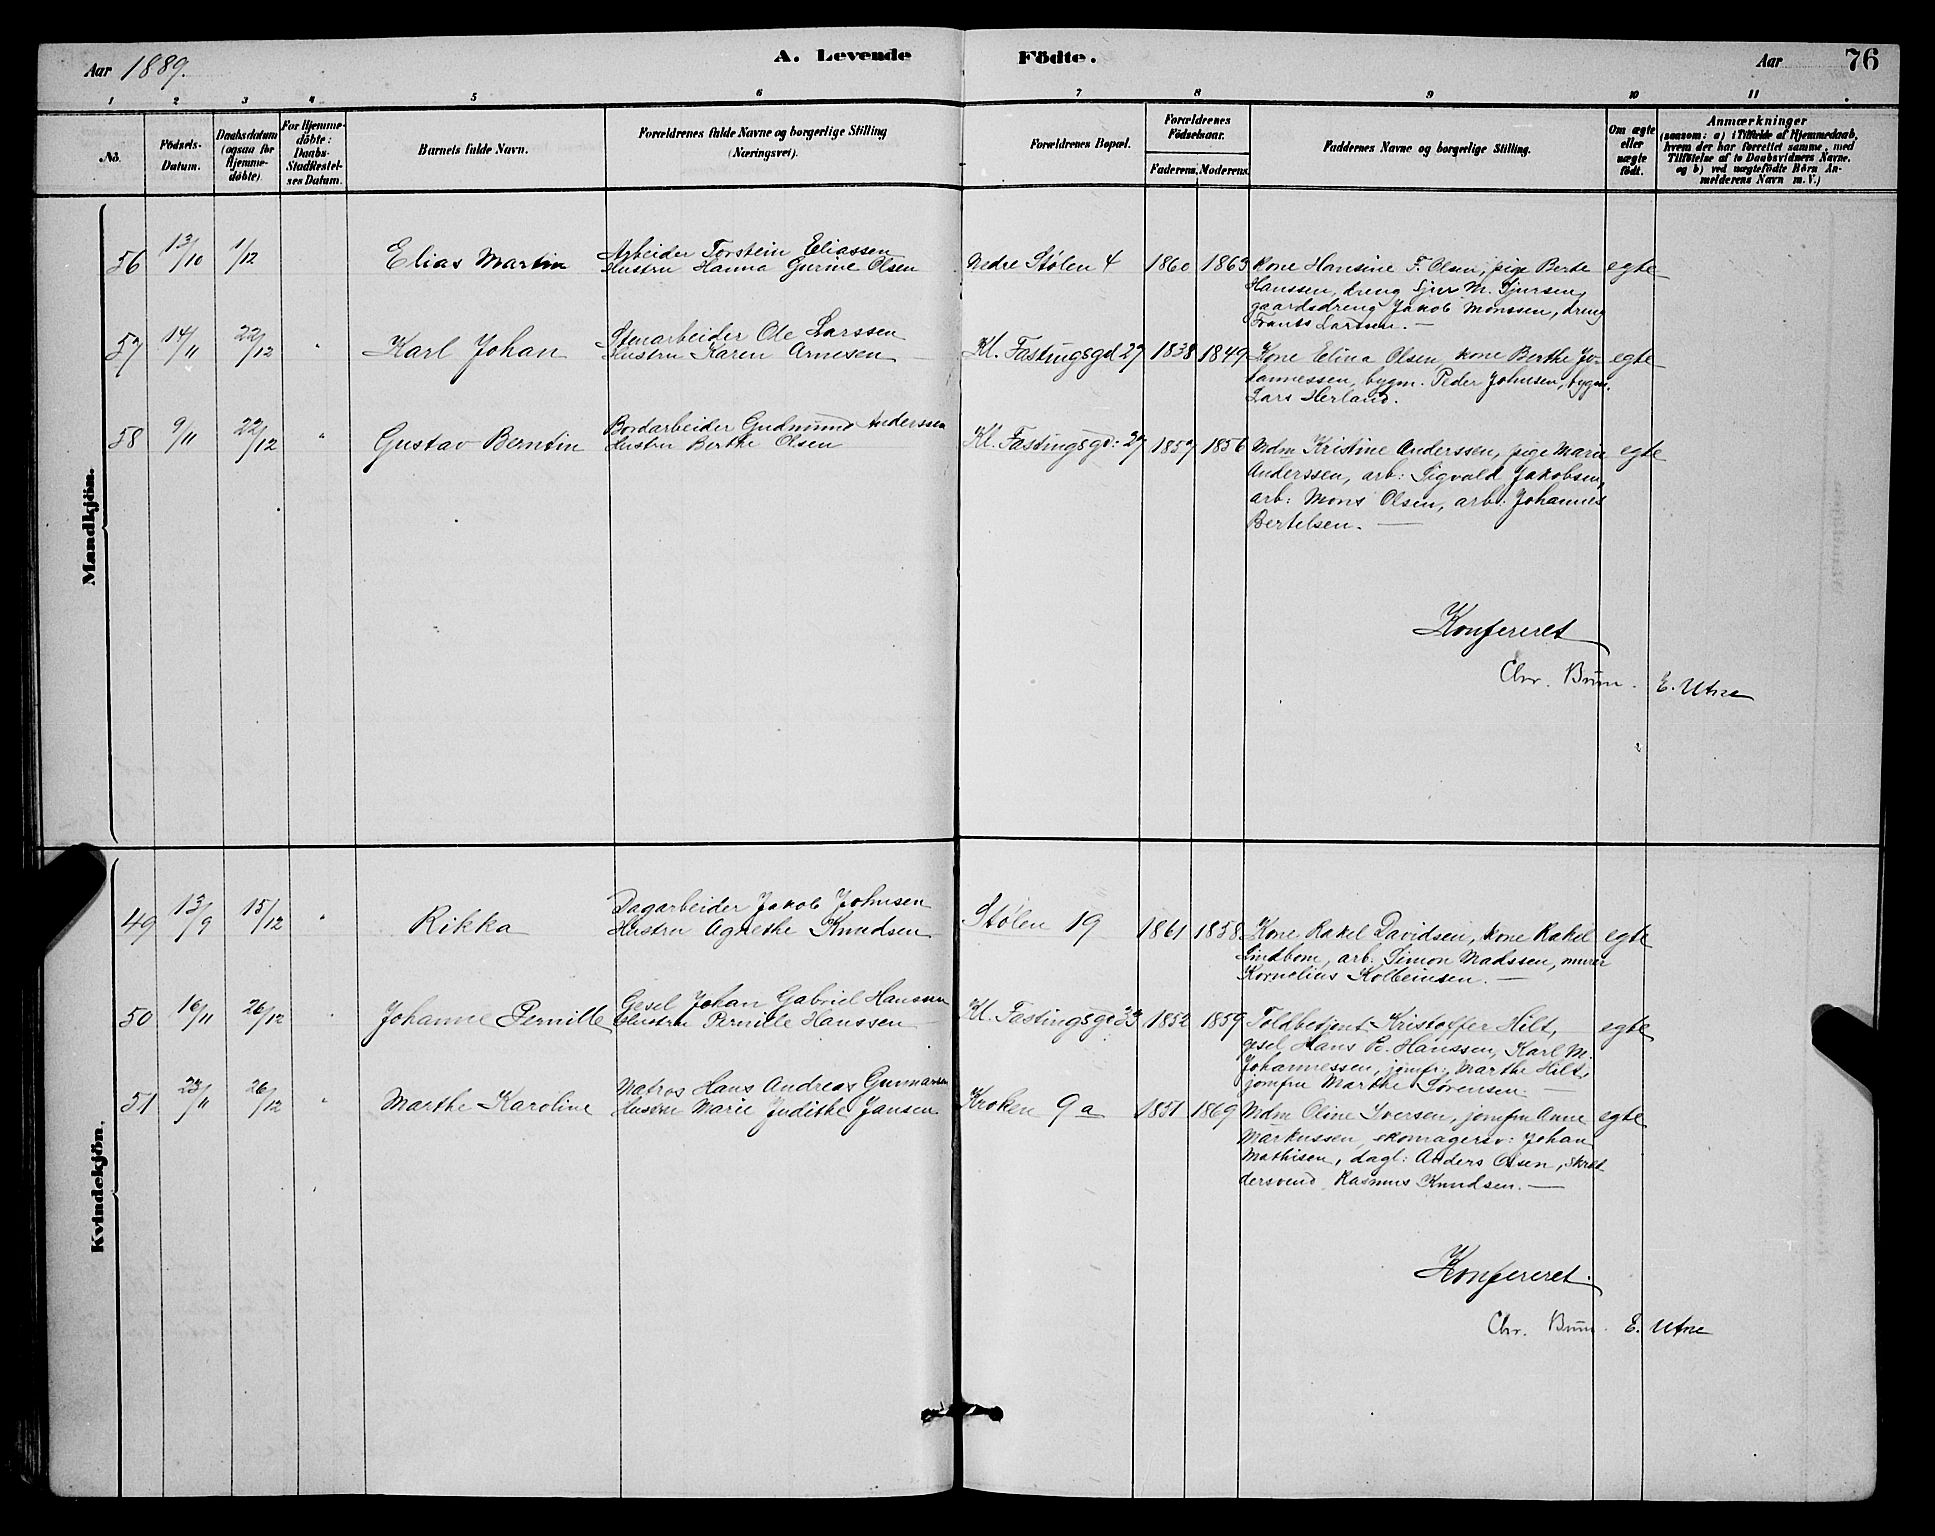 Aar 1889. A. Levende Födte. Aar 76
1 2 3 4 5 6 7 8 9 10 11
No. Födsels-Datum. Daabsdatum (ogsaa for Hjemme-döbte). For Hjemme-döbte: Daabs-Stadfæstel-ses Datum. Barnets fulde Navn. Forældrenes fulde Navne og borgerlige Stilling (Næringsvei). Forældrenes Bopæl. Forældrenes Födselsaar. Faderens. Moderens. Faddernes Navne og borgerlige Stilling. Om ægte eller uægte födt. Anmærkninger (saasom: a) i Tilfælde af Hjemmedaab, hvem der har forrettet samme, med Tilföielse af to Daabsvidners Navne. og b) ved uægtefödte Börn An-melderens Navn m. V.)
Mandkjön.
56 13/10 1/12 Elias Martin Arbeider Torstein Eliassen
Hustru Hanna Gurine Olsen Nedre Stølen 4 1860 1863 Kone Hansine F. Olsen, pige Berte egte
Hanssen, dreng Sjur M. Sjursen,
gaardsdreng Jakob Monssen, dreng
Frants Larssen. —
57 14/11 22/12 " Karl Johan Stenarbeider Ole Larssen
Hustru Karen Arnesen — Kl. Fastingsgd 27 1838 1849 Kone Elina Olsen, kone Berthe Jo- egte
hannessen, bygm. Peder Johnsen, bygm.
Lars Herland.
58 9/11 22/12 " Gustav Berntin Bordarbeider Gudmund Anderssen
Hustru Berthe Olsen Kl. Fastingsgd: 27 1857 1856 Mdm Kristine Anderssen, pige Marie egte
Anderssen, arb: Sigvald Jakobsen,
arb: Mons Olsen, arb: Johannes
Bertelsen. —
Konfereret
Chr. Bruun. E. Utne
Kvindekjön.
49 13/9 15/12 " Rikka Dagarbeider Jakob Johnsen
Hustru Agnethe Knudsen Stølen 19 1861 1858 Kone Rakel Davidsen, kone Rakel egte
Lindbom, arb. Simon Madssen, murer
Kornelius Kolbeinsen. —
50 16/11 26/12 " Johanne Pernille Gesel Johan Gabriel Hanssen
Hustru Pernille Hanssen — Kl. Fastingsgd 33 1852 1859 Toldbetjent Kristoffer Hilt, — egte
gesel Hans P. Hanssen, Karl M.
Johannessen, jomfr: Marthe Hilt,
jomfru Marthe Sørensen —
51 23/11 26/12 " Marthe Karoline Matros Hans Andreas Gunnarsen
Hustru Marie Judithe Jansen Kroken 9 a 1851 1869 Mdm Oline Iversen, jomfru Anne egte
Markussen, skomagersv: Johan
Mathisen, dagl: Anders Olsen, skræd-
dersvend Rasmus Knudsen. —
Konfereret.
Chr. Bruun. E. Utne